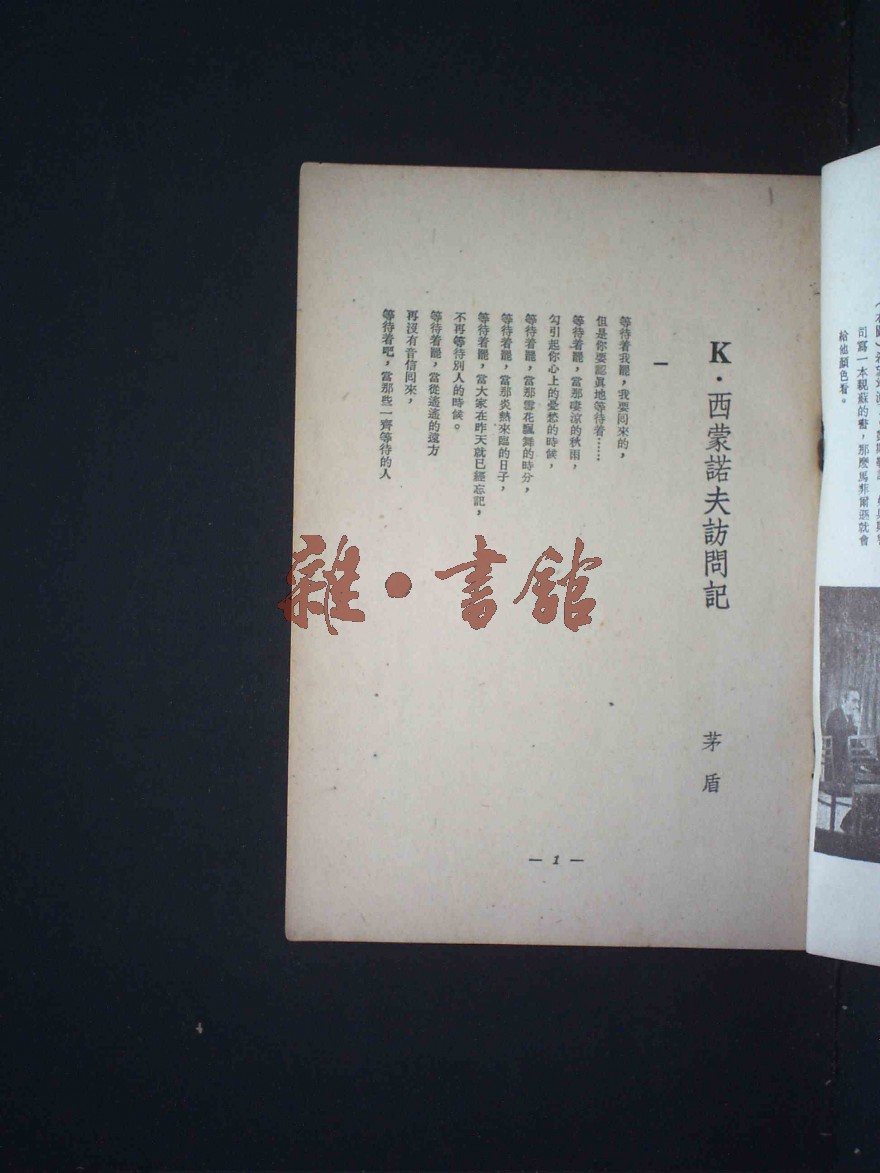 K·西蒙諾夫訪問記
茅盾
一
等待着我罷，我要同來的，
但是你要認眞地等待着……
等待着罷，當那凄涼的秋雨，
勾引起你心上的憂愁的時候，
等待着罷，當那雪花飄舞的時分，
等待着罷，當那炎熱來臨的日子，
等待着罷，當大家在昨天就已經忘記，
不再等待別人的時候。
等待着罷，當從遙遙的遠方
再沒有音信囘來，
等待着吧，當那些一齊等待的人
— 1 —
司寫一本親蘇的書，那麽馬菲爾遜就會
給他顏色看。
雜·書館